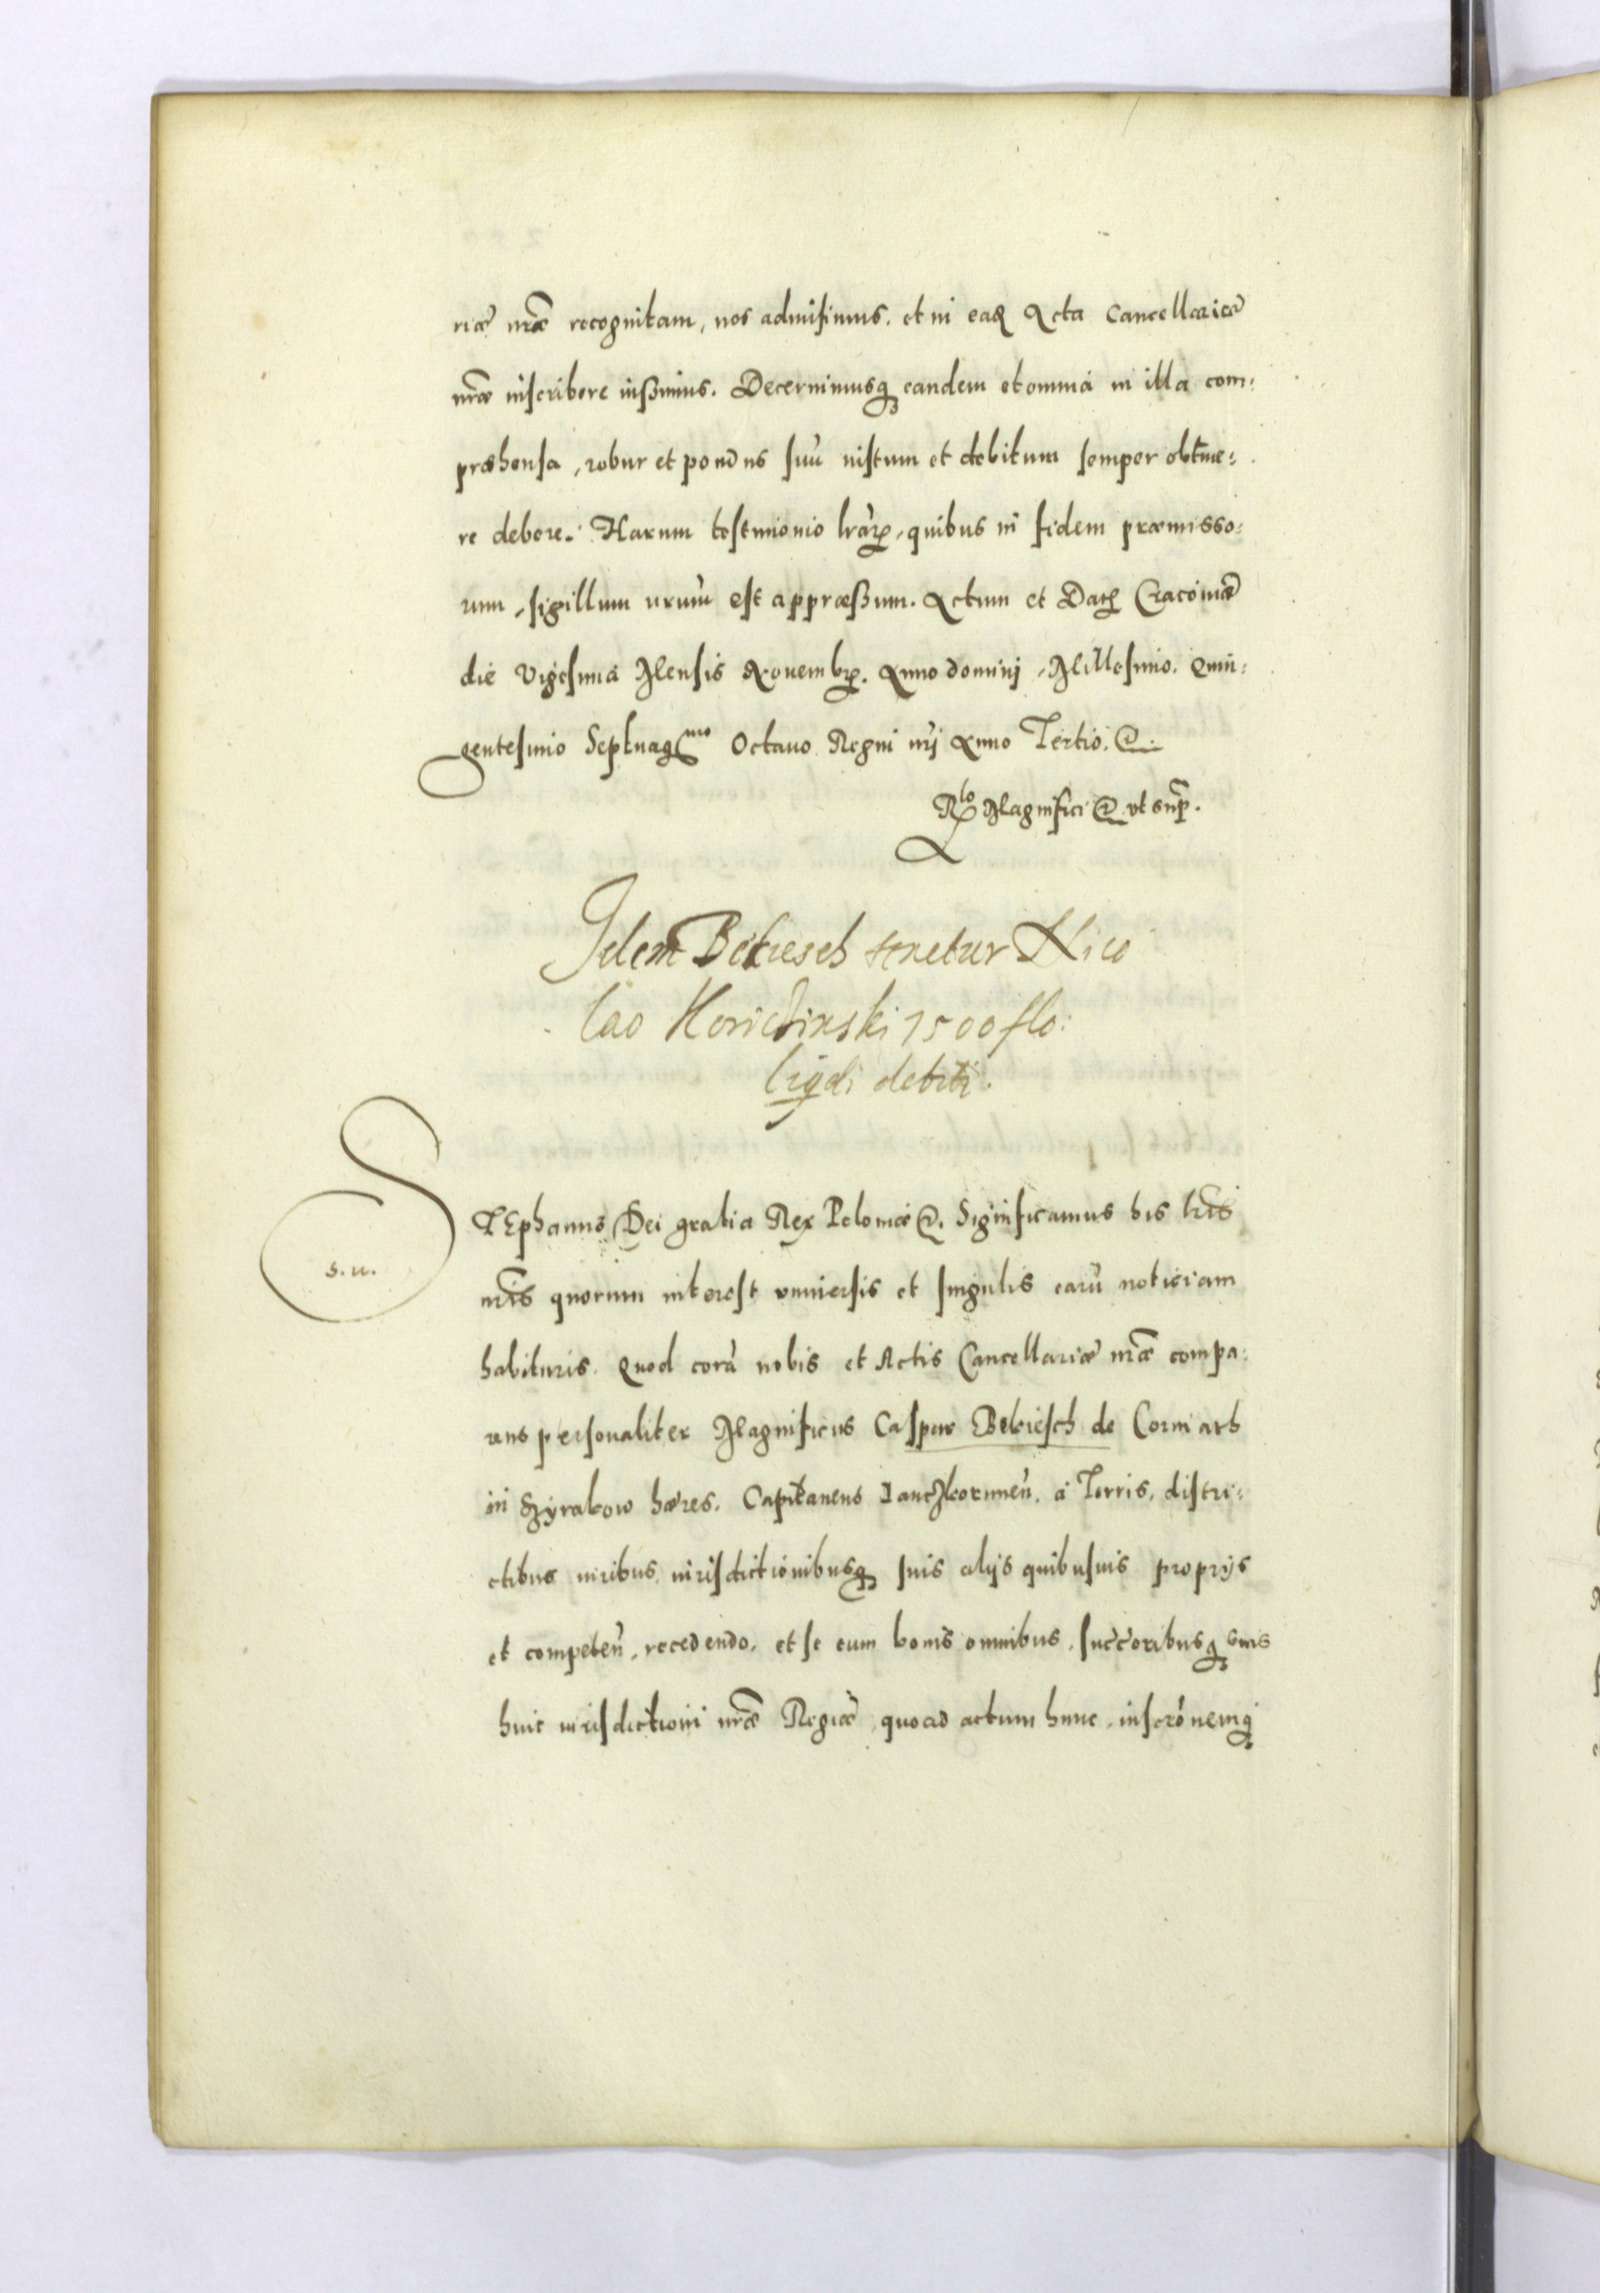 riæ nr̃æ recognitam, nos admisimus. et in eaꝝ Acta Cancellariæ
nr̃æ inscribere iussimus. Decernimusq́ eandem et omnia in illa com:
præhensa, robur et pondus suũ iustum et debitum semper obtine:
re debere. Harum testimonio lr̃arꝝ, quibus in fidem præmisso:
rum, sigillum nrũm est appræssum. Actum et Datꝝ Cracoviæ
die Vigesima Mensis Nouembrꝭ. Anno domini, Millesimo. Quin:
gentesimo Septuagᵐᵒ Octauo Regni nrĩ Anno Tertio. &.
Rˡᵒ Magnifici & vt supꝭ.
Idem Bekiesch tenetur Nico
lao Koricinski 1500 flo:
ligdi debiti.
STEphanus Dei gratia Rex Poloniæ &. Significamus his lr̃is
s. u.
nr̃is quorum interest vniuersis et singulis earũ noticiam
habituris. Quod corã nobis et Actis Cancellariæ nr̃æ compa:
rens personaliter Magnificus Caspar Bekiesch de Corniath
in hæres. Capitaneus Lanczkorunen̄. à Terris, distri:
ctibus iuribus iurisdictionibusq́ suis alijs quibusuis proprijs
et competen̄, recedendo. et se cum bonis omnibus, succ̃oribusq́ suis
huic iurisdictioni nr̃æ Regiæ, quoad actum hunc, inscrõnemq́